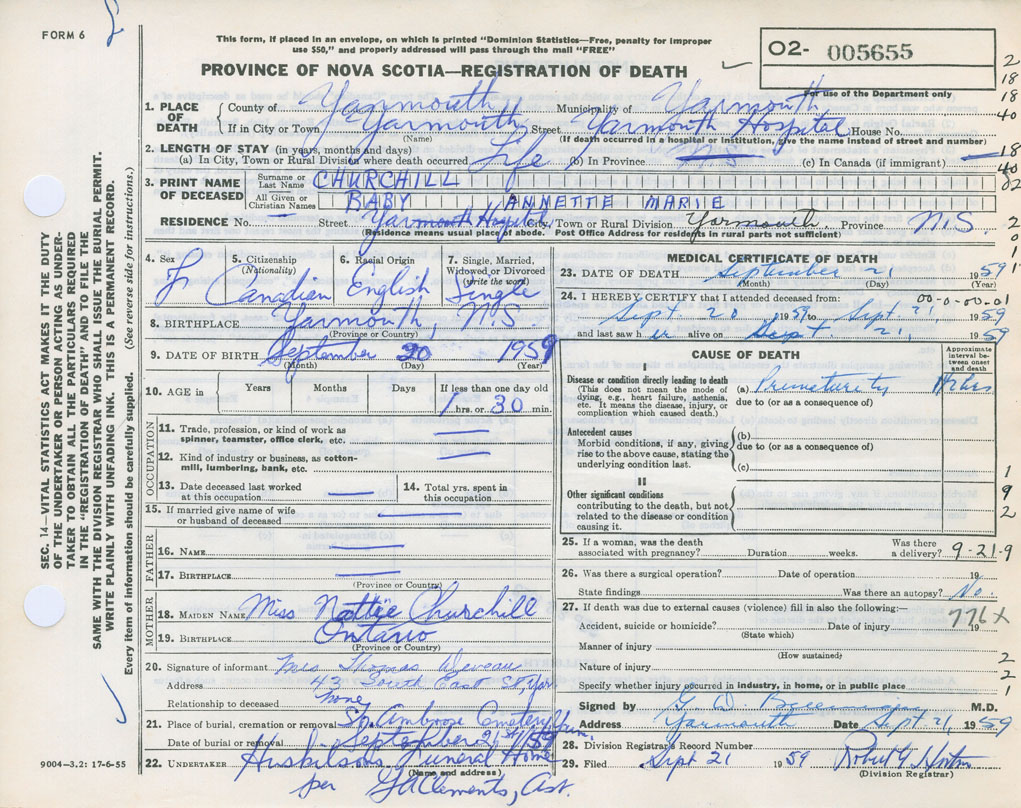 FORM 6
This form, if placed in an envelope, on which is printed "Dominion Statistics—Free, penalty for improper
use $50," and properly addressed will pass through the mail "FREE"
PROVINCE OF NOVA SCOTIA—REGISTRATION OF DEATH
O2- 005655
For use of the Department only
1. PLACE OF DEATH County of Yarmouth Municipality of Yarmouth
If in City or Town Yarmouth Street Yarmouth Hospital House No.
(Name) (If death occurred in a hospital or institution, give the name instead of street and number)
2. LENGTH OF STAY (in years, months and days)
(a) In City, Town or Rural Division where death occurred Life (b) In Province N.S. (c) In Canada (if immigrant)
3. PRINT NAME OF DECEASED Surname or Last Name CHURCHILL
All Given or Christian Names BABY ANNETTE MARIE
RESIDENCE No. Street Yarmouth Hospital City, Town or Rural Division Yarmouth. Province N.S.
(Residence means usual place of abode. Post Office Address for residents in rural parts not sufficient)
4. Sex F
5. Citizenship (Nationality) Canadian
6. Racial Origin English
7. Single, Married, Widowed or Divorced (write the word) Single
8. BIRTHPLACE Yarmouth, N.S.
(Province or Country)
9. DATE OF BIRTH September 20 1959
(Month) (Day) (Year)
10. AGE in Years Months Days If less than one day old
1 hrs. or 30 min.
OCCUPATION
11. Trade, profession, or kind of work as
spinner, teamster, office clerk, etc.
12. Kind of industry or business, as cotton-
mill, lumbering, bank, etc.
13. Date deceased last worked
at this occupation
14. Total yrs. spent in
this occupation
15. If married give name of wife
or husband of deceased
FATHER
16. NAME
17. BIRTHPLACE
(Province or Country)
MOTHER
18. MAIDEN NAME Miss Nattie Churchill
19. BIRTHPLACE Ontario
(Province or Country)
20. Signature of informant Mrs Thomas Deveau
Address 43 South East St Yar
Relationship to deceased none
21. Place of burial, cremation or removal St. Ambrose Cemetery Yar.
Date of burial or removal September 21st/59
22. UNDERTAKER Huskilsons Funeral Home
(Name and address)
per GAClements, Ast.
9004—3.2: 17-6-55
MEDICAL CERTIFICATE OF DEATH
23. DATE OF DEATH September 21 1959
(Month) (Day) (Year)
24. I HEREBY CERTIFY that I attended deceased from: 00-0-00-01
Sept 20 1959 to Sept. 21, 1959
and last saw her alive on Sept. 21, 1959
CAUSE OF DEATH
Approximate interval between onset and death
Disease or condition directly leading to death
(This does not mean the mode of
dying, e.g., heart failure, asthenia,
etc. It means the disease, injury, or
complication which caused death.)
(a) Prematurity
due to (or as a consequence of)
Antecedent causes
Morbid conditions, if any, giving
rise to the above cause, stating the
underlying condition last.
(b)
due to (or as a consequence of)
(c)
II
Other significant conditions
contributing to the death, but not
related to the disease or condition
causing it.
25. If a woman, was the death
associated with pregnancy? Duration weeks. Was there a delivery? 9-21-9
26. Was there a surgical operation? Date of operation 19
State findings Was there an autopsy? No.
27. If death was due to external causes (violence) fill in also the following:—
776X
Accident, suicide or homicide? Date of injury 19
(State which)
Manner of injury
(How sustained)
Nature of injury
Specify whether injury occurred in industry, in home, or in public place
Signed by G. D. M.D.
Address Yarmouth Date Sept. 21, 1959
28. Division Registrar's Record Number
29. Filed Sept 21 1959 Robert G. Horton
(Division Registrar)
SEC. 14—VITAL STATISTICS ACT MAKES IT THE DUTY
OF THE UNDERTAKER OR PERSON ACTING AS UNDER-
TAKER TO OBTAIN ALL THE PARTICULARS REQUIRED
IN THE "REGISTRATION OF DEATH" AND TO FILE THE
SAME WITH THE DIVISION REGISTRAR WHO SHALL ISSUE THE BURIAL PERMIT.
WRITE PLAINLY WITH UNFADING INK. THIS IS A PERMANENT RECORD.
Every item of information should be carefully supplied. (See reverse side for instructions.)
2
18
18
40
18
40
02
2
0
1
1
9
2
2
2
1